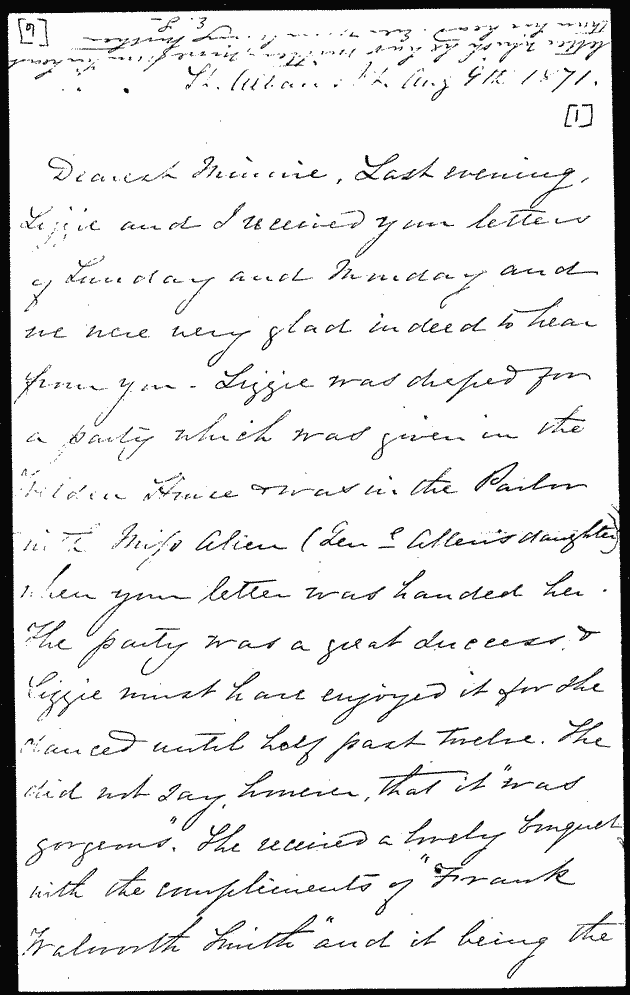 [6]
letter which he has written,
E. S.
St. Albans Vt. Aug 9th 1871.
[1]
Dearest Minnie, Last evening,
Lizzie and I received your letters
of Sunday and Monday and
we were very glad indeed to hear
from you - Lizzie was dressed for
a party which was given in the
Welden House & was in the Parlor
with Miss Allen (Genl Allen's daughter)
when your letter was handed her.
The party was a great success &
Lizzie must have enjoyed it for she
danced until half past twelve. She
did not say, however, that it "was
gorgeous". She received a lovely bouquet
with the compliments of "Frank
Walworth Smith" and it being the